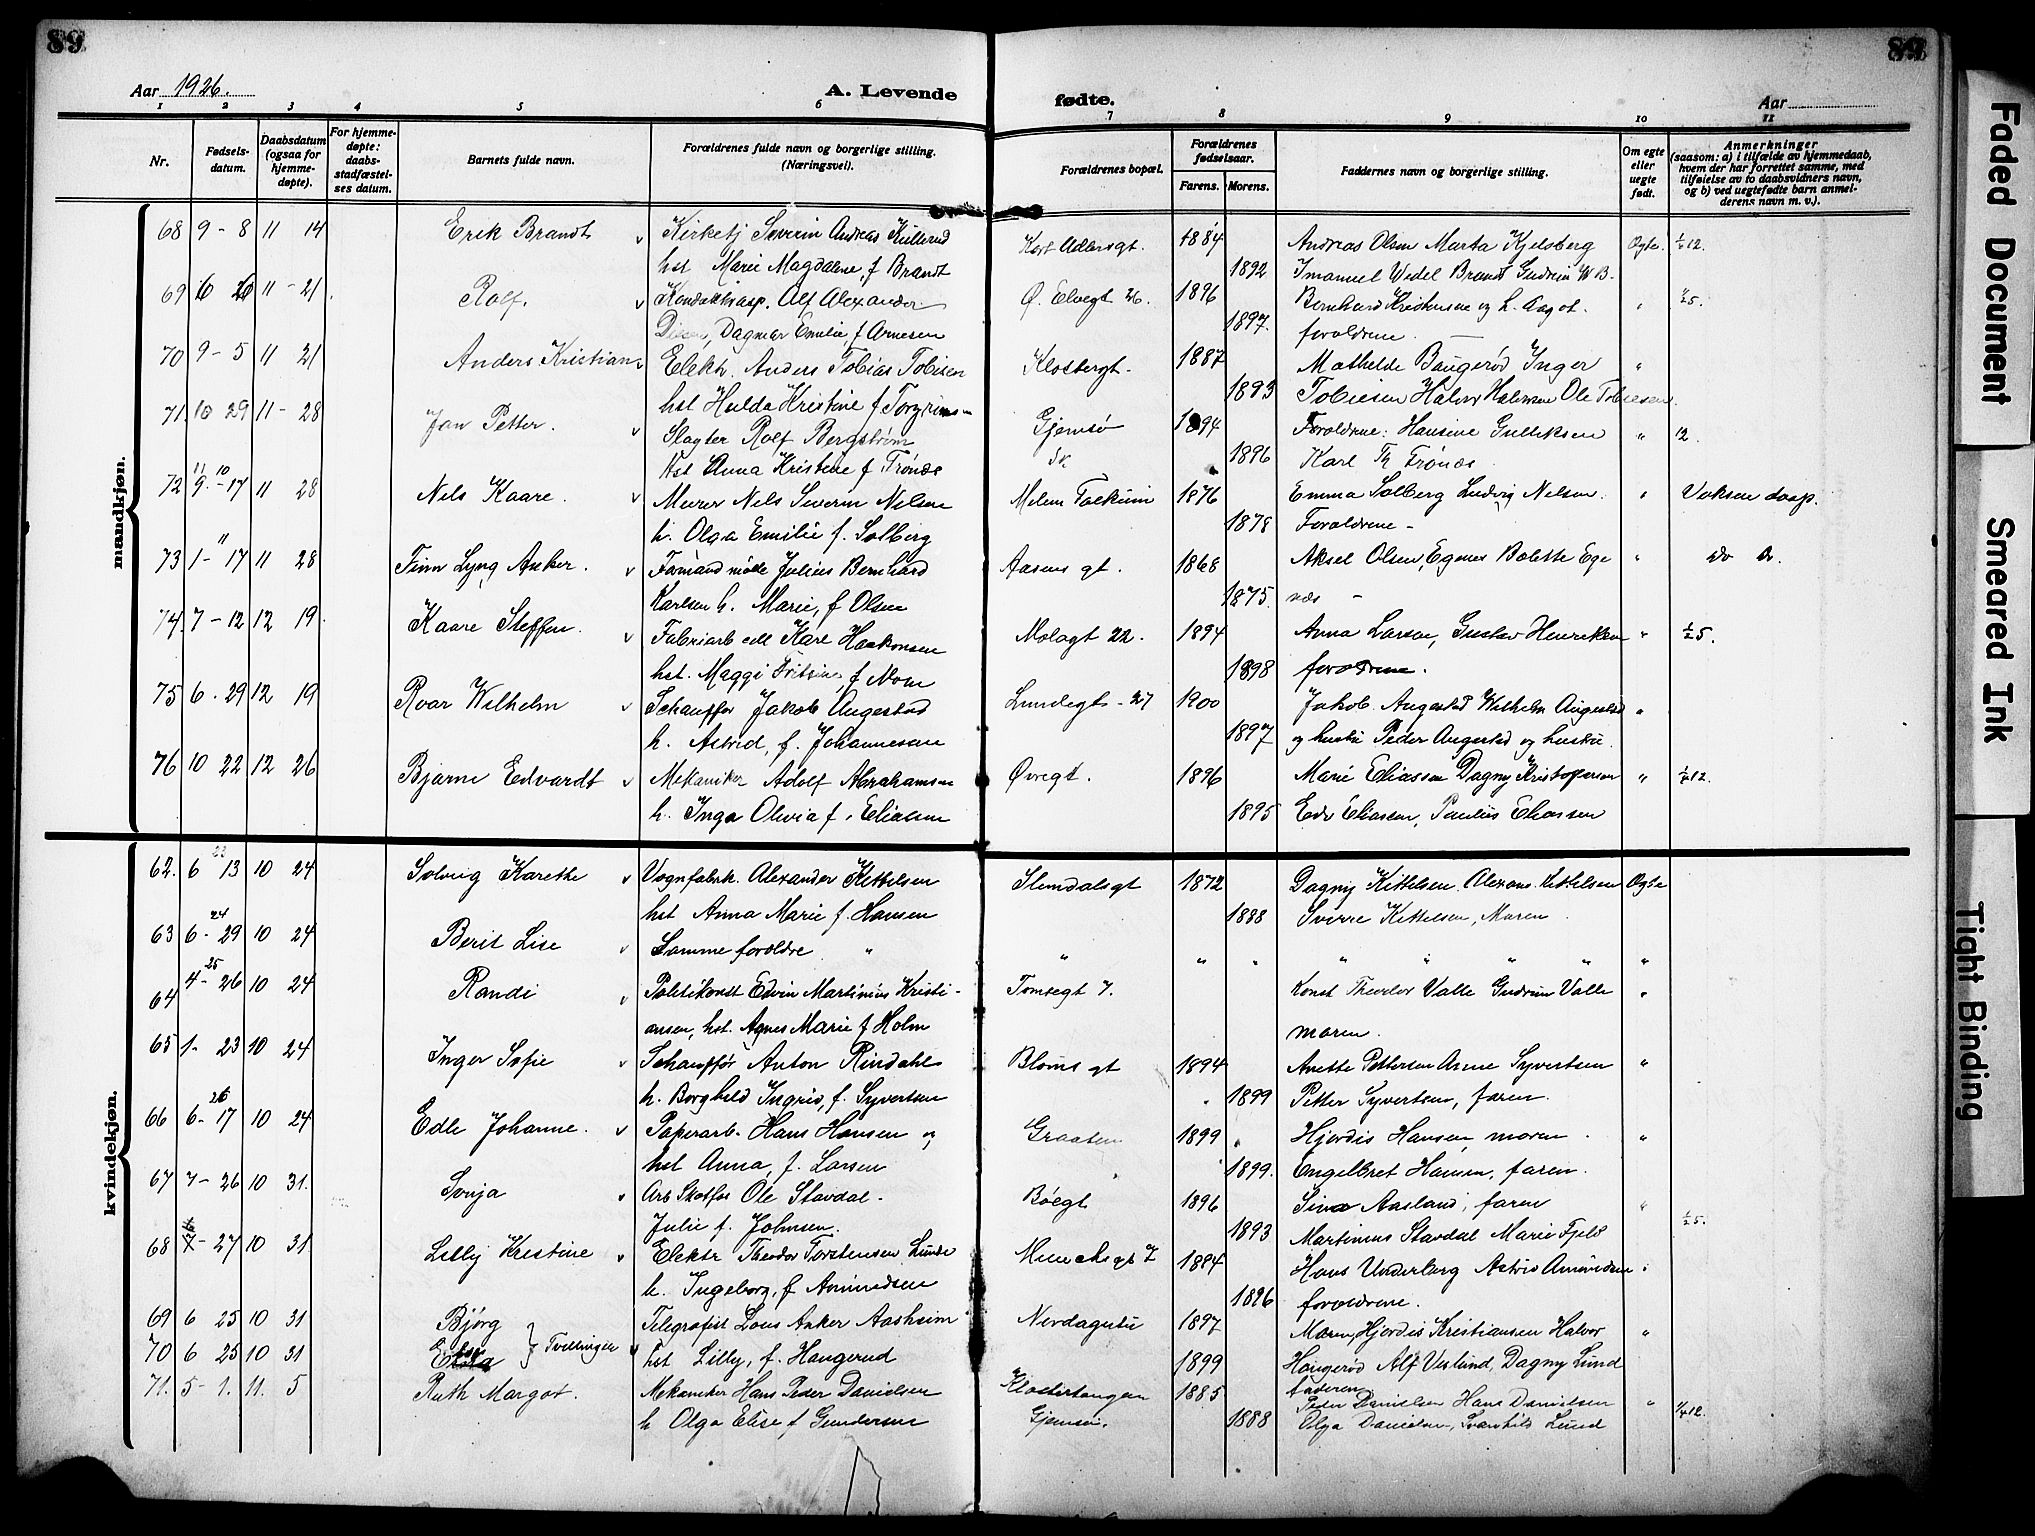 89
89
Aar 1926.
A. Levende
fødte.
Aar
1 2 3 4 5 6 7 8 9 10 11
Nr.
Fødsels-
datum.
Daabsdatum
(ogsaa for
hjemme-
døpte).
For hjemme-
døpte:
daabs-
stadfæstel-
ses datum.
Barnets fulde navn.
Forældrenes fulde navn og borgerlige stilling.
(Næringsvei).
Forældrenes bopæl.
Forældrenes
fødselsaar.
Farens. Morens.
Faddernes navn og borgerlige stilling.
Om egte
eller
uegte
født.
Anmerkninger
(saasom: a) i tilfælde av hjemmedaab,
hvem der har forrettet samme, med
tilføielse av to daabsvidners navn,
og b) ved uegtefødte barn anmel-
derens navn m. v.).
mandkjøn.
68 9 - 8 11 14 Erik Brandt Kirketj Severin Andreas Kullerud 1884 Andreas Olsen Marta Kjelsberg Egte. 12.
hst Marie Magdalene, f Brandt 1892 Imanuel Wedel Brandt Gudrun W B.
69 6 26 11 - 21. Rolf. Alf Alexander Ø. Elvegt 26. 1896 Bernhard Kristensen og h. Aagot. "
Dagmar Emilie, f Arnesen 1897. forældrene.
70 9 - 5 11 21 Anders Kristian Elektr. Anders Tobias Tobiesen Klosbergt. 1887 Mathilde Baugerød Inger "
hst Hulda Kristine f 1893 Tobiesen Halvor Halvorsen Ole Tobiesen.
71. 10 29 11 - 28 Jan Petter. Slagter Rolf Bergstrøm Gjemsø 1894 Forældrene: Hansine Gulliksen " 12.
Hst Anna Kristine f Trónæs 1896 Karl Th Trónæs.
72 17 11 28 Nils Kaare. Murer Nils Severin Nilsen 1876 Emma Solberg Ludvig Nilsen. " Voksen daap.
h. Olga Emilie f. Solberg 1878 Forældrene -
73 1 - 17 11 28 Finn Lyng Anker. Julius Bernhard Aasens gt. 1868 Aksel Olsen, Egenes Bolette Ege "
Karlsen h. Marie, f Olsen 1875. næs -
74. 7 - 12 12 19. Kaare Steffen. Kare Haakonsen Molagt 22. 1894 Anna Larsen, Gustav Henriksen "
hst. Maggi Fritsine, f Nome 1898 forældrene.
75 6 - 29 12 19 Roar Wilhelm Schauffør Jakob Augestad Lundegt - 27 1900 Jakob Augestad Wilhelm Augestad "
h. Astrid, f. Johannesen 1897 og hustru Peder Augestad og hustru.
76 10 22 12 26 Bjarne Edvardt Mekaniker Adolf Abrahamsen Øvregt. 1896 Marie Eliassen Dagny Kristopersen " 12.
h. Inga Olivia f. Eliassen 1895 Edv Eliassen, Paulus Eliassen
kvindekjøn.
62. 6 13 10 24 Solveig Karethe Vognfabrk. Alexander Kittelsen Slemdalsgt 1872 Dagny Kittelsen Alexans. Kittelsen Egte
hst Anna Marie f. Hansen 1888 Sverre Kittelsen, Moren
63 6 - 29 10 24 Berit Lise Samme forældre " " " " " " " " "
64 4 - 26 10 24 Randi Politikonst Edvin Martinius Kristi- Tomsegt 7. Konst Theodor Valle Gudrun Valle "
ansen, hst. Agnes Marie f Holm moren.
65 1 - 23 10 24 Inger Sofie Schauffør Anton Rindahl Bloms gt 1894 Anette Pettersen Arne Syvertsen "
h. Borghild Ingrid, f. Syvertsen 1899 Petter Syvertsen, faren.
66 6 - 17 10 24 Edle Johanne. Paperarb. Hans Hansen og Graaten 1899 Hjørdis Hansen moren. "
hst Anna, f. Larsen 1899. Engelbret Hansen, faren.
67 7 - 26 10 31. Svnja Arb Skotfos Ole Stavdal. Bóegt 1896 Sina Aasland, faren "
Julie f. Johnsen. 1893 Martinius Stavdal Marie Fjeld
68 27 10 31 Lilly Kristine Elektr Theodor Torstensen Lunde Munchsgt 7 1884 Hans Underberg Astrid Amundsen "
h. Ingeborg, f Amundsen 1896 forældrene.
69 6 25 10 31 Bjórg Telegrafist Lous Anker Aasheim Nordagutu 1897 Moren, Hjordis Kristiansen Halvor "
70 6 25 10 31 Tvillinger hst Lilly, f. Haugerud 1899 Haugerød Alf Veslund, Dagny Lund
faderen
71. 5 - 1. 11. 5 Ruth Margot. Mekaniker Hans Peder Danielsen Klostertangen 1885 Peder Danielsen Hans Danielsen " 12.
h Olga Elise f Gundersen Gjemsø. 1888 Olga Danielsen, Svanhild Lund
Faded Document
Smeared Ink
Tight Binding